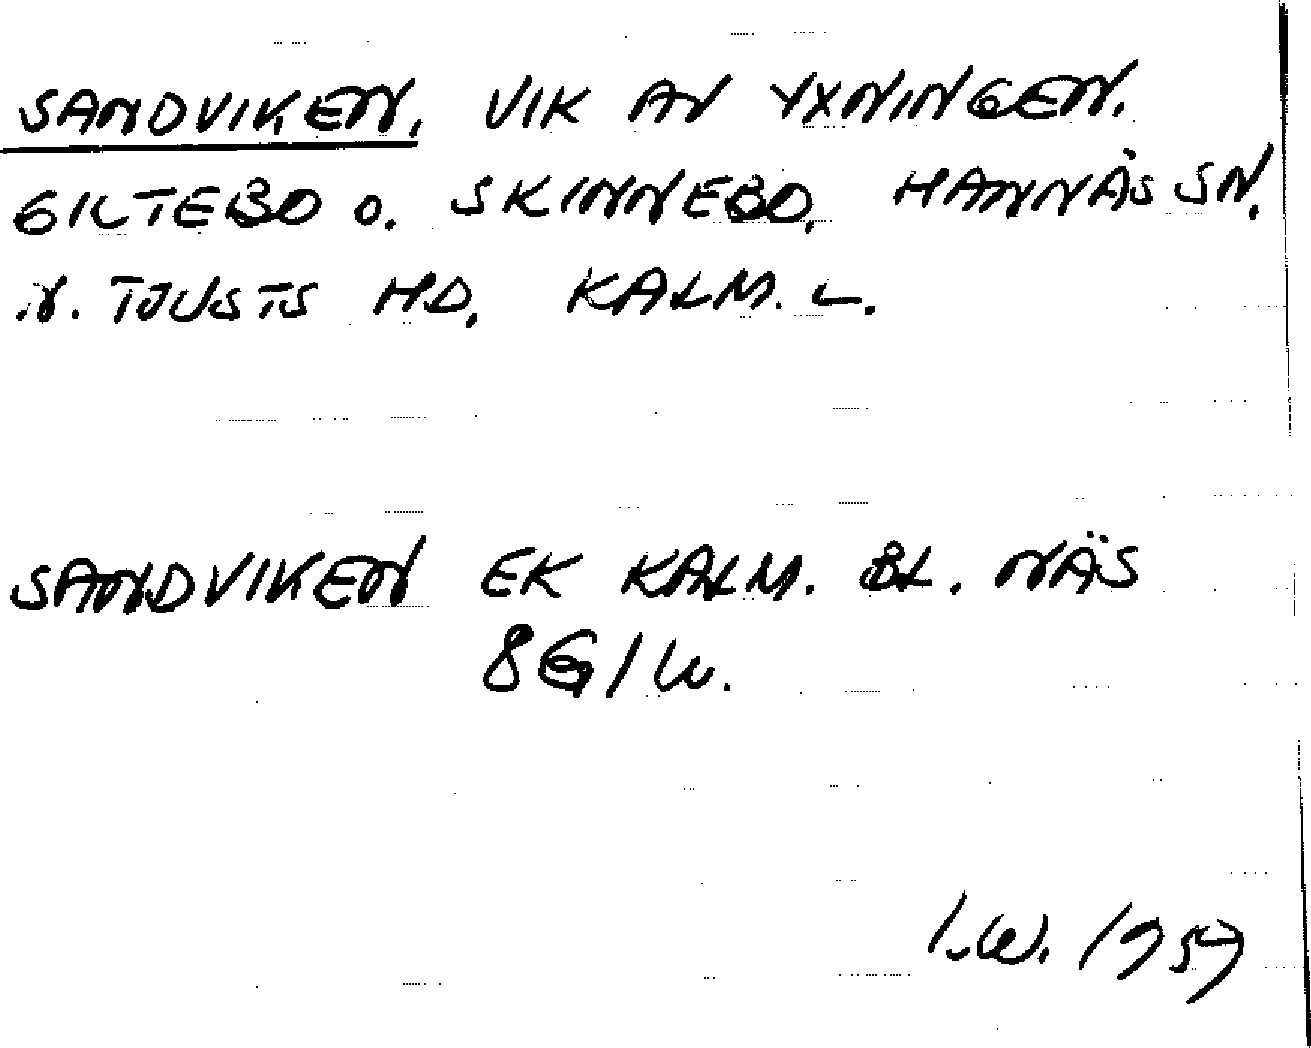 SANDVIKEN. VIK AV YXNINGEN.
GILTEBO O. SKINNEBO, HANNÄS SN,
N. TJUSTS HD, KALM. L.
SANDVIKEN EK KALM. BL. NÄS
8G/W.
I.W. 1959